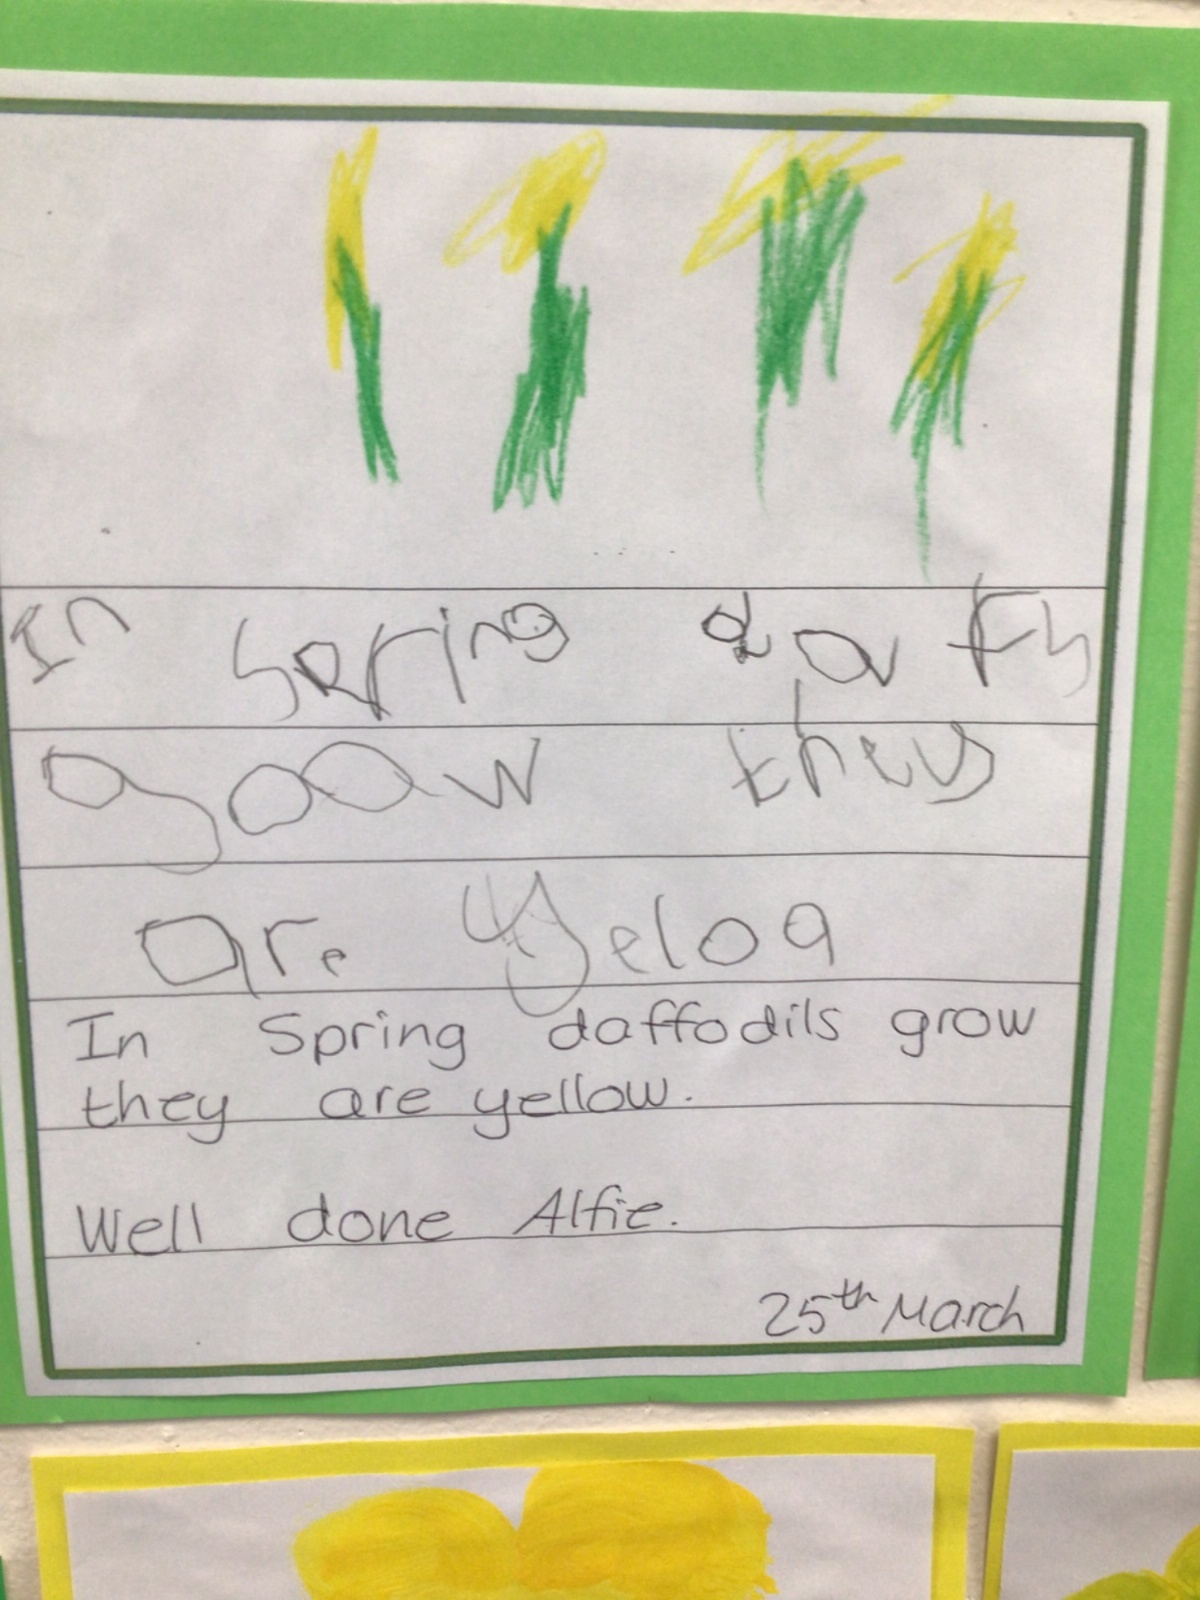 In Spring
goow they
are yeloa
In Spring daffodils grow
they are yellow.
Well done Alfie.
25th March